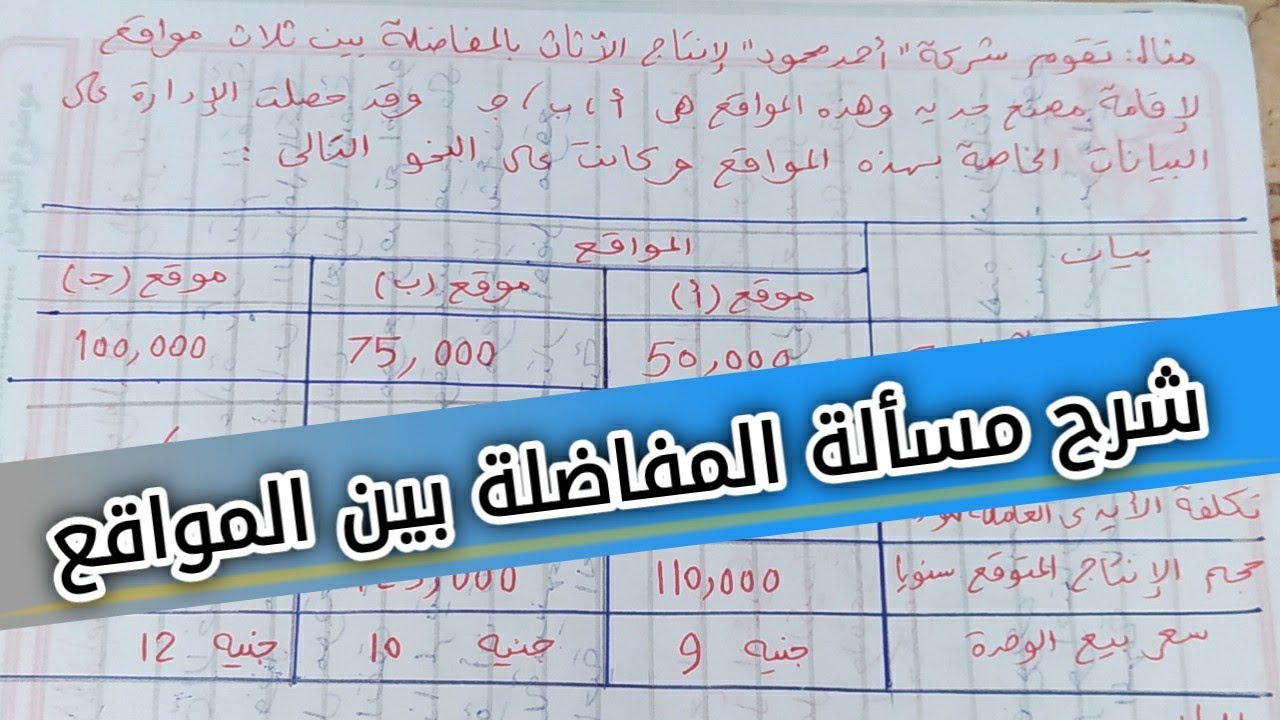 مثال: تقوم شركة "أحمد محمود" لإنتاج الأثاث بالمفاضلة بين ثلاث مواقع
لإقامة مصنع جديد وهذه المواقع هى أ، ب، جـ وقد حصلت الإدارة على
البيانات الخاصة بهذه المواقع وكانت على النحو التالى :
بيان المواقع
موقع (أ) موقع (ب) موقع (جـ)
50,000 75,000 100,000
شرح مسألة المفاضلة بين المواقع
تكلفة الأيدى العاملة
حجم الإنتاج المتوقع سنويا 110,000
سعر بيع الوحدة 9 جنيه 10 جنيه 12 جنيه